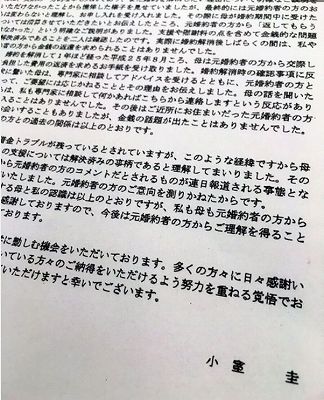 いただけなかったことから憔悴した様子を見せていましたが、最終的には元婚約者の方
は変わらないと理解し、お申し入れを受け入れました。その際に母が婚約期間中に受けた
して清算させていただきたいとお伝えしたところ、元婚約者の方から「返してもらう
けなかった」という明確なご説明がありました。支援や慰謝料の点を含めて金銭的な問題
解決済みであることを二人は確認したのです。実際に婚約解消後しばらくの間は、私や
者の方から金銭の返還を求められることはありませんでした。
を解消して1年ほど経った平成25年8月ころ、母は元婚約者の方から交際し
負担した費用の返済を求めるお手紙を受け取りました。婚約解消時の確認事項に反
に驚いた母は、専門家に相談してアドバイスを受けるとともに、元婚約者の方と
って、ご要望には応じかねることとその理由をお伝えしました。母の話を聞いた
は、私も専門家に相談して何かあればこちらから連絡しますという反応があり
ることはありませんでした。その後はご近所にお住まいだった元婚約者の方
会いすることもありましたが、金銭の話題が出たことはありませんでした。
の方との過去の関係は以上のとおりです。
銭トラブルが残っているとされていますが、このような経緯ですから母
の支援については解決済みの事柄であると理解してまいりました。その
ら元婚約者の方のコメントだとされるものが連日報道される事態とな
いたしました。元婚約者の方のご意向を測りかねたからです。
る母と私の認識は以上のとおりですが、私も母も元婚約者の方から
感謝しておりますので、今後は元婚約者の方からご理解を得ること
おります。
に勤しむ機会をいただいております。多くの方々に日々感謝い
ている方々のご納得をいただけるよう努力を重ねる覚悟でお
いただけますと幸いでございます。
小室 圭